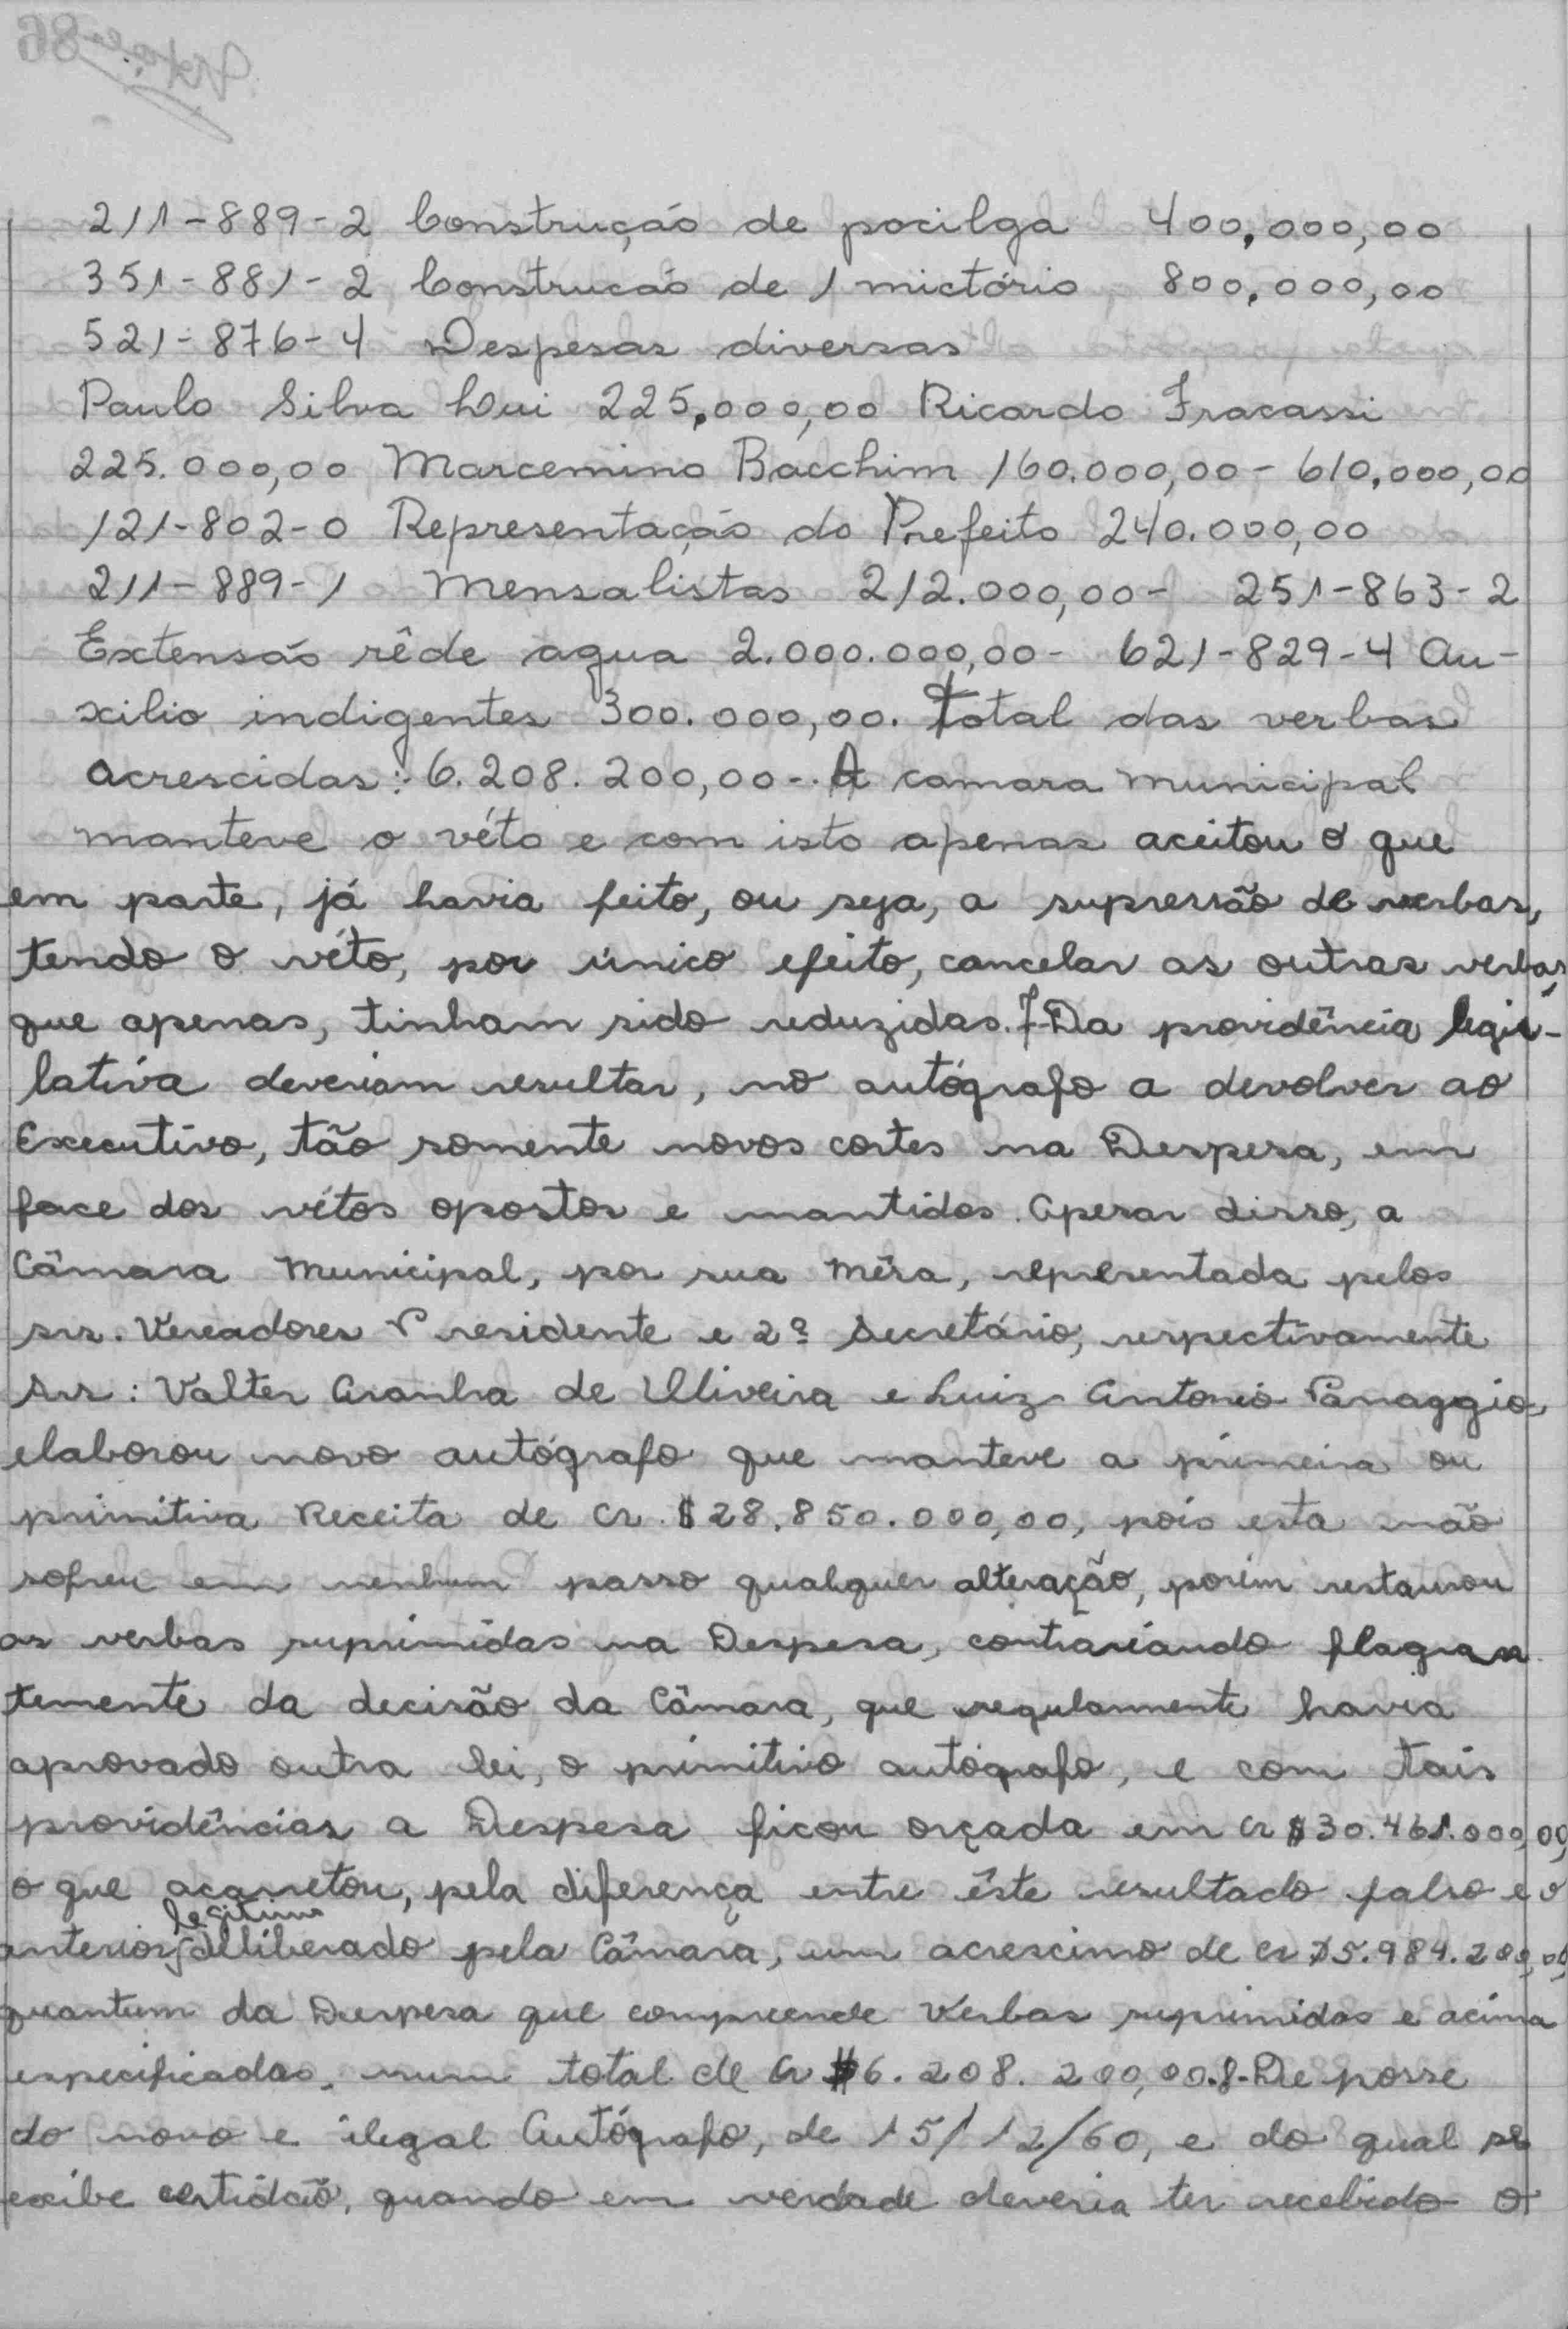 211-889-2 Construção de pocilga 400.000,00
351-881-2 Construcão de 1 mictório 800.000,00
521-876-4 Despesas diversas
Paulo Silva Lui 225.000,00 Ricardo Fracassi
225.000,00 Marcemino Bacchim 160.000,00 - 610.000,00
121-802-0 Representação do Prefeito 240.000,00
211-889-1 Mensalistas 212.000,00 - 251-863-2
Extensão rêde agua 2.000.000,00 - 621-829-4 Au-
xilio indigentes 300.000,00. Total das verbas
acrescidas: 6.208.200,00 -. A camara municipal
manteve o véto e com isto apenas aceitou o que
em parte, já havia feito, ou seja, a supressão de verbas,
tendo o véto, por único efeito, cancelar as outras verbas
que apenas, tinham sido reduzidas. 7-Da providência legis-
lativa deveriam resultar, no autógrafo a devolver ao
Executivo, tão somente novos cortes na Despesa, em
face dos vétos opostos e mantidos. Apesar disso, a
Câmara Municipal, por sua Mêsa, representada pelos
srs. Vereadores Presidente e 2º Secretário, respectivamente
Srs: Valter Aranha de Oliveira e Luiz Antonio Panaggio,
elaborou novo autógrafo que manteve a primeira ou
primitiva Receita de Cr. $28.850.000,00, pois esta não
sofreu em nenhum passo qualquer alteração, porém restaurou
as verbas suprimidas na Despesa, contrariando flagran
temente da decisão da Câmara, que regularmente havia
aprovado outra lei, o primitivo autógrafo, e com tais
providências a Despesa ficou orçada em Cr $30.461.000,00,
o que acarretou, pela diferença entre êste resultado falso e o
legitimo
anterior, delliberado pela Câmara, um acrescimo de Cr $5.984.200,00,
quantum da Despesa que compreende Verbas suprimidas e acima
especificadas, num total de Cr $6.208.200,00. 8-De posse
do novo e ilegal Autógrafo, de 15/12/60, e do qual se
exibe certidão, quando em verdade deveria ter recebido o